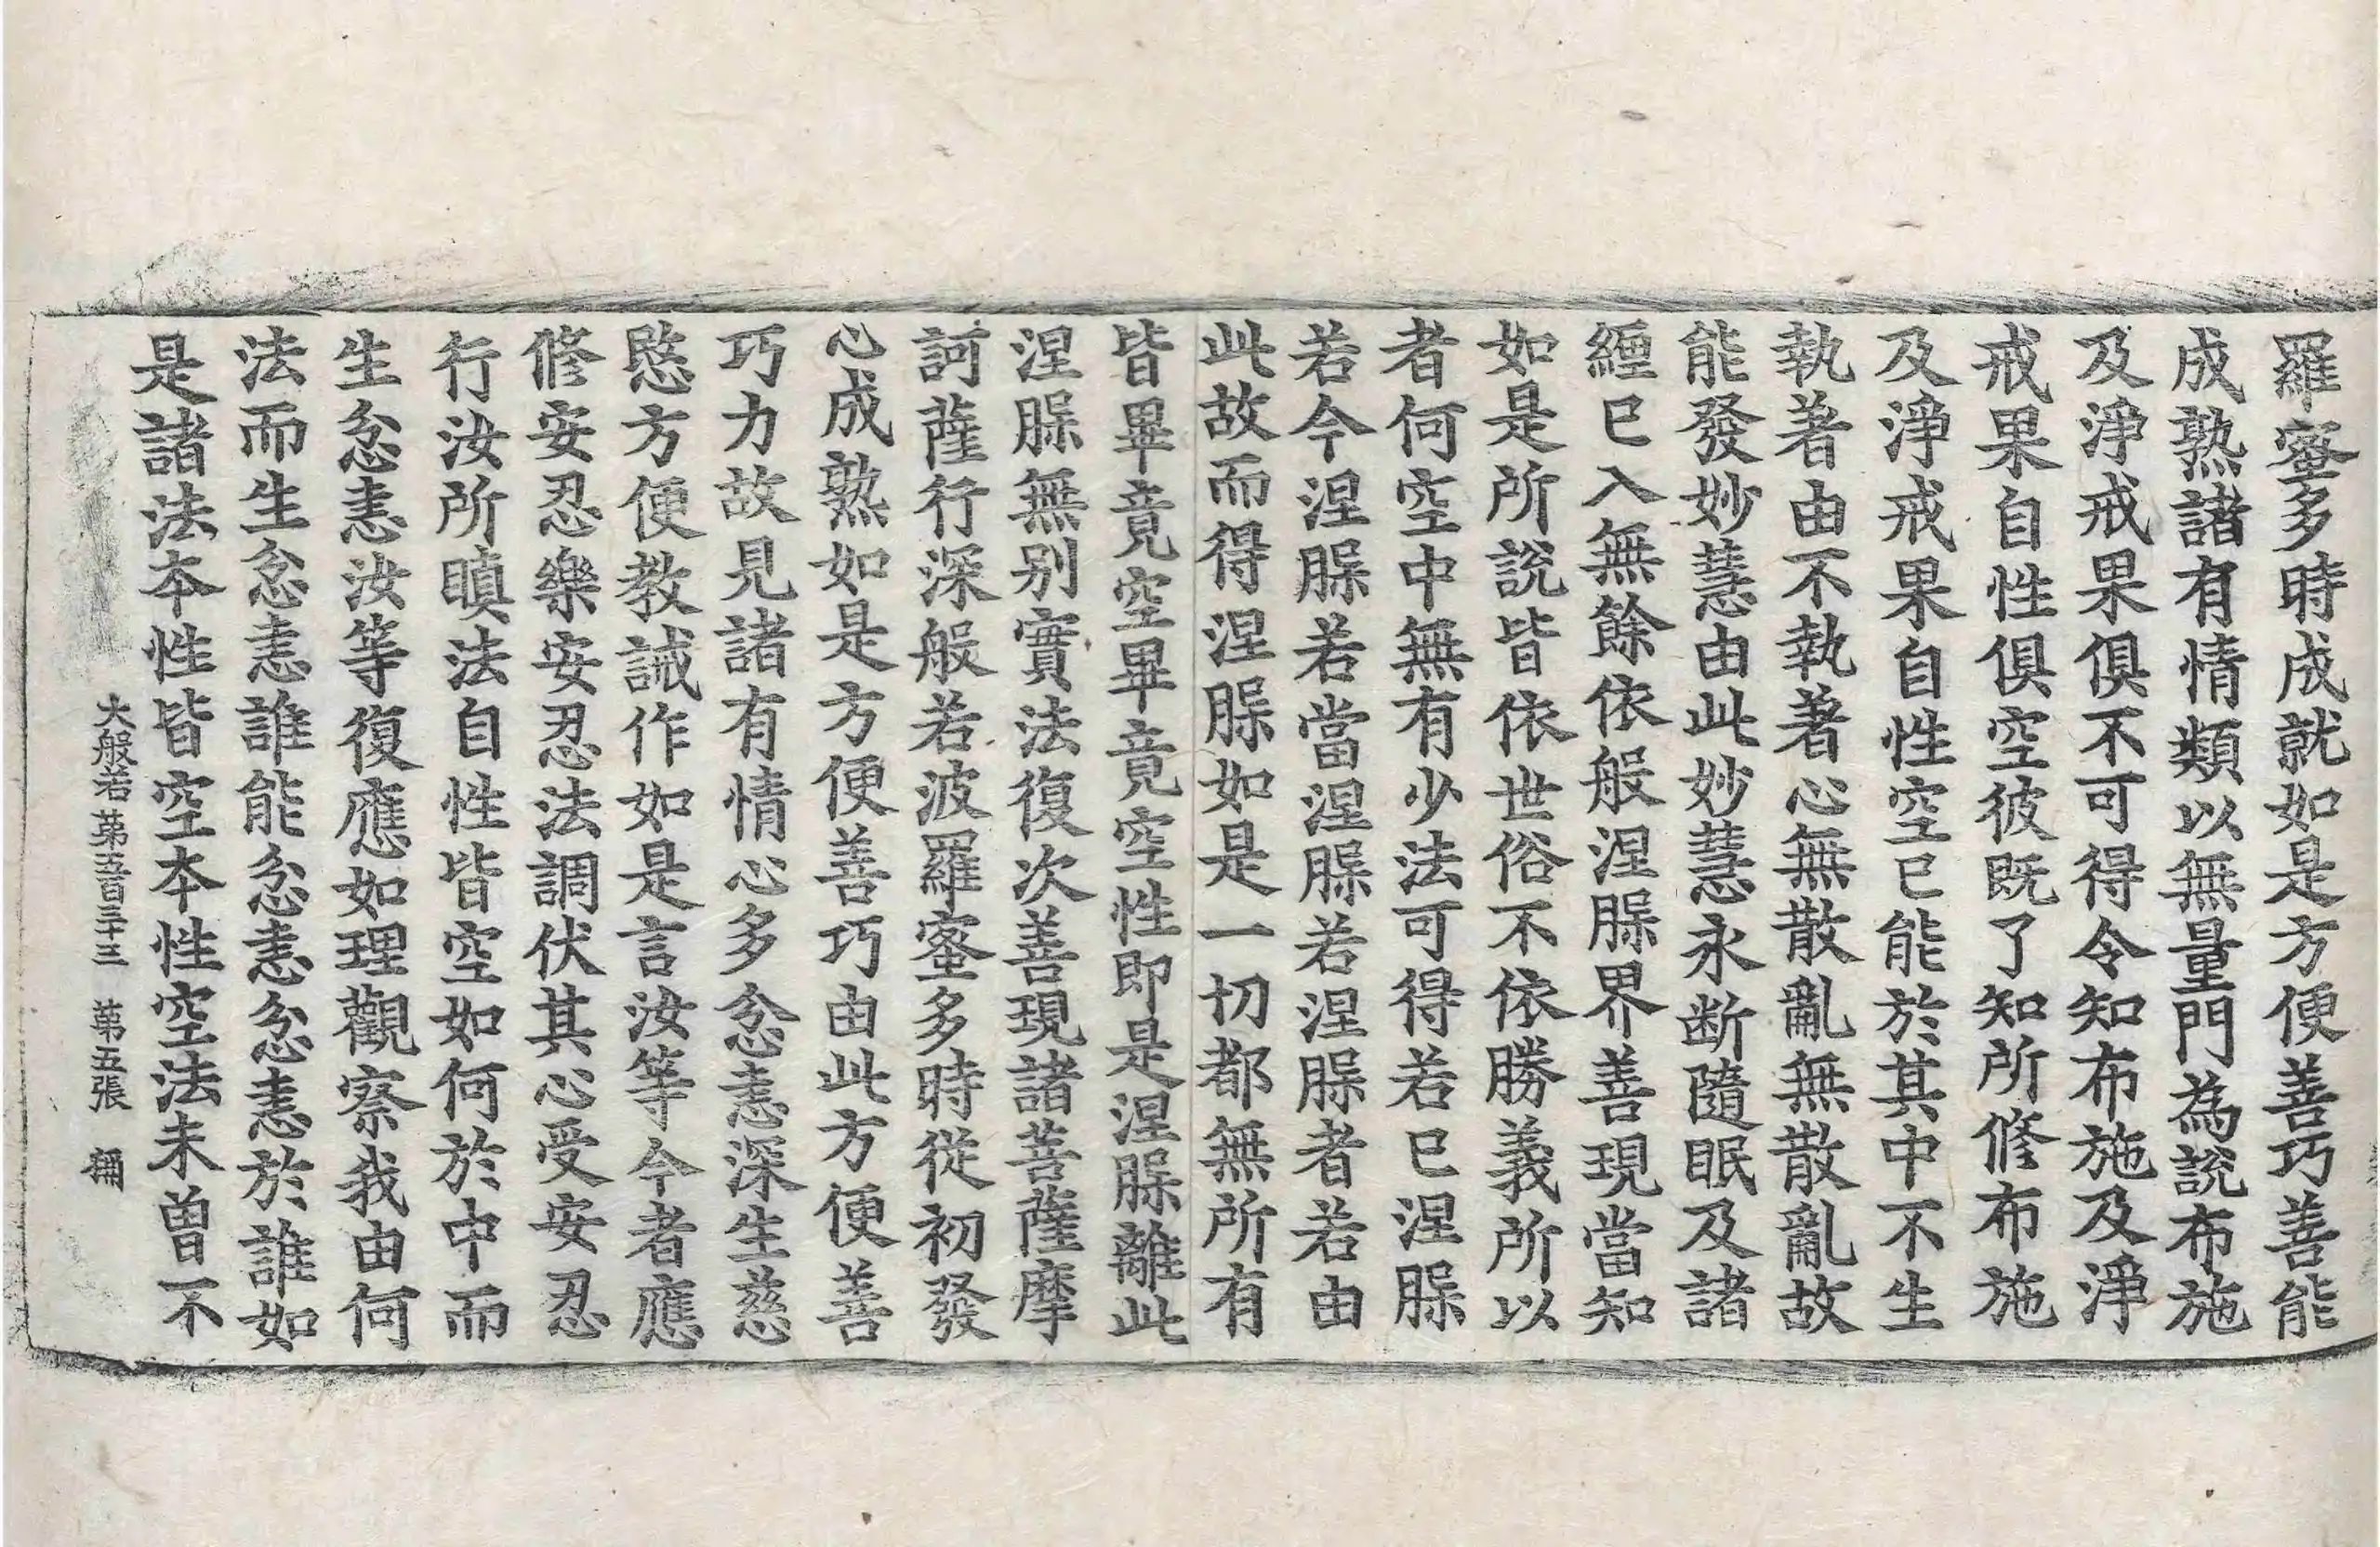 羅蜜多時成就如是方便善巧善能
成熟諸有情類以無量門為說布施
及淨戒果俱不可得令知布施及淨
戒果自性俱空彼既了知所修布施
及淨戒果自性空已能於其中不生
執著由不執著心無散亂無散亂故
能發妙慧由此妙慧永断隨眠及諸
纏已入無餘依般涅槃界善現當知
如是所說皆依世俗不依勝義所以
者何空中無有少法可得若已涅槃
若今涅槃若當涅槃若涅槃者若由
此故而得涅槃如是一切都無所有
皆畢竟空畢竟空性即是涅槃離此
涅槃無別實法復次善現諸菩薩摩
訶薩行深般若波羅蜜多時從初發
心成熟如是方便善巧由此方便善
巧力故見諸有情心多忿恚深生慈
愍方便教誡作如是言汝等今者應
修安忍樂安忍法調伏其心受安忍
行汝所瞋法自性皆空如何於中而
生忿恚汝等復應如理觀察我由何
法而生忿恚誰能忿恚忿恚於誰如
是諸法本性皆空本性空法未曾不
大般若第五百三十三 第五張 稱